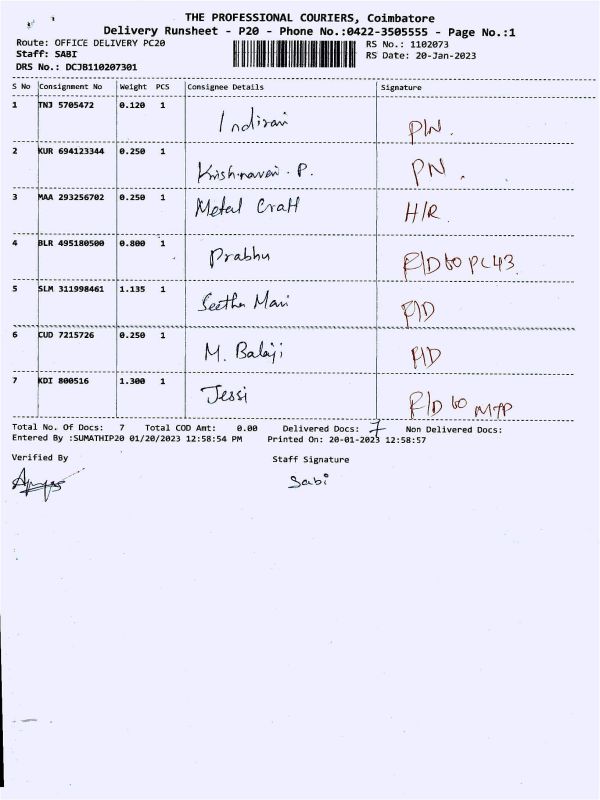 THE PROFESSIONAL COURIERS, Coimbatore
Delivery Runsheet - P20 - Phone No.:0422-3505555 - Page No.:1
Route: OFFICE DELIVERY PC20 RS No.: 1102073
Staff: SABI RS Date: 20-Jan-2023
DRS No.: DCJB110207301
S No Consignment No Weight PCS Consignee Details Signature
1 TNJ 5705472 0.120 1 Indirani P/N.
2 KUR 694123344 0.250 1 Krishnaveni . P. PN .
3 MAA 293256702 0.250 1 Metal Craft H/R.
4 BLR 495180500 0.800 1 Prabhu R/D to PC43
5 SLM 311998461 1.135 1 Seetha Mani R/D
6 CUD 7215726 0.250 1 M. Balaji R/D
7 KDI 800516 1.300 1 Jessi R/D to MTP
Total No. Of Docs: 7 Total COD Amt: 0.00 Delivered Docs: 7 Non Delivered Docs:
Entered By :SUMATHIP20 01/20/2023 12:58:54 PM Printed On: 20-01-2023 12:58:57
Verified By Staff Signature
Sabi